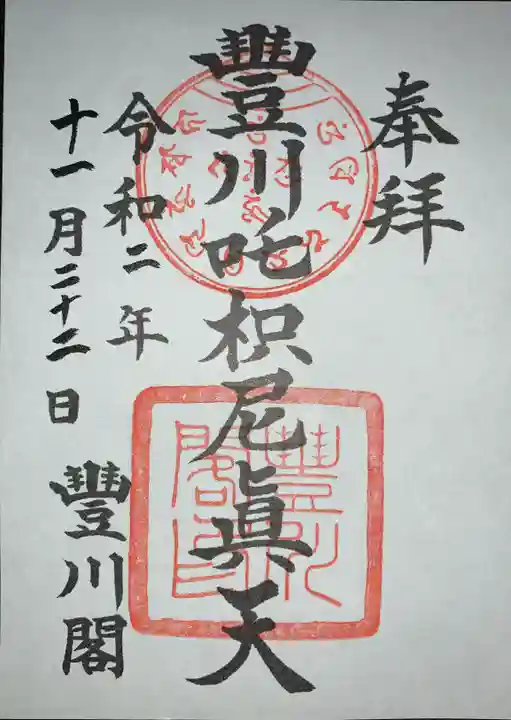 奉拜
豐川吒枳尼眞天
令和二年
十一月二十二日
豐川閣
豐川閣印